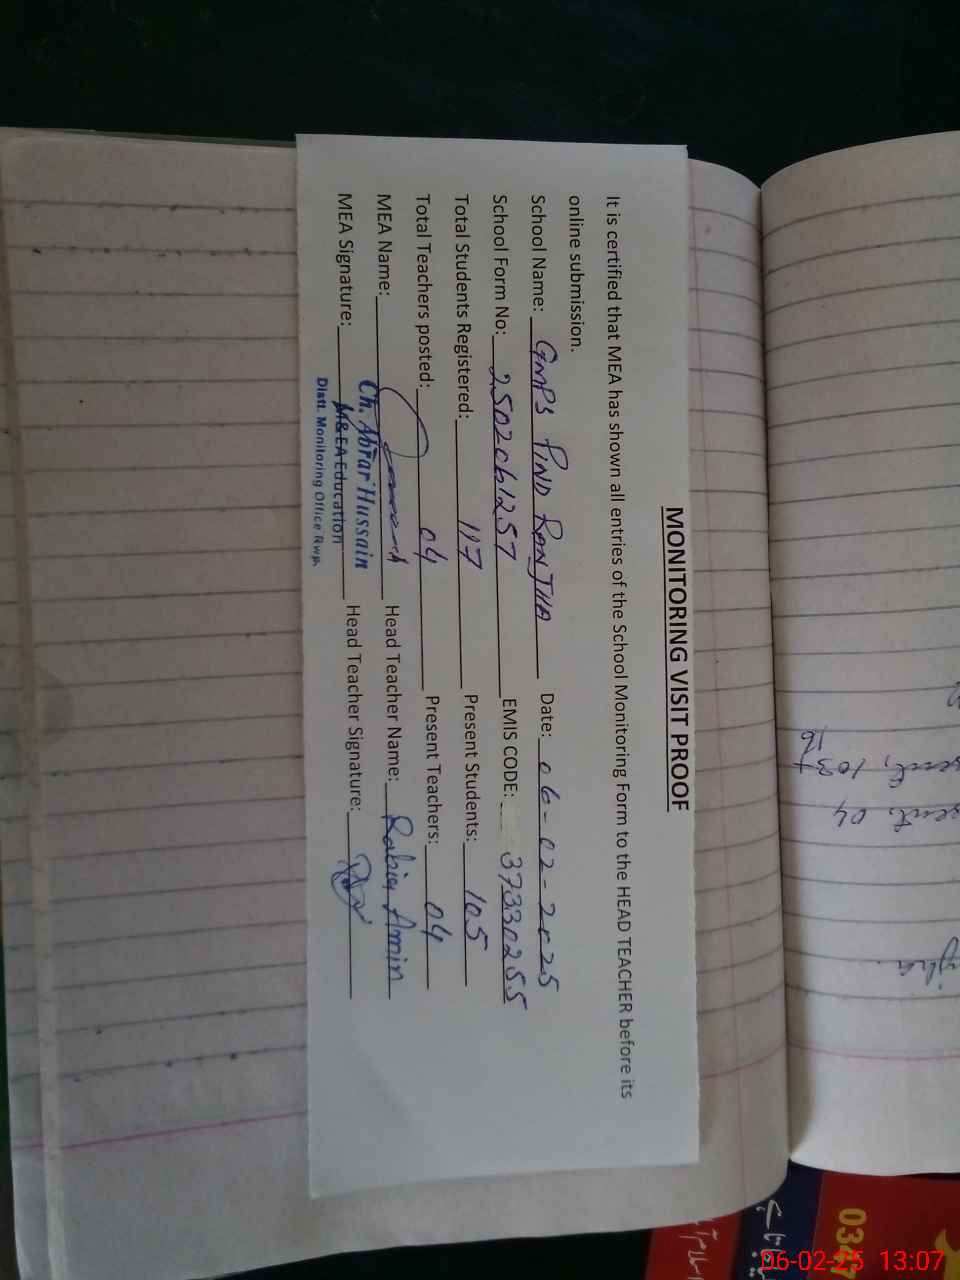 MONITORING VISIT PROOF
It is certified that MEA has shown all entries of the School Monitoring Form to the HEAD TEACHER before its
online submission.
School Name: GMPS PIND RANJHA Date: 06-02-2025
School Form No: 2502061257 EMIS CODE: 37330255
Total Students Registered: 117 Present Students: 105
Total Teachers posted: 04 Present Teachers: 04
MEA Name: Head Teacher Name: Rabia Amin
Ch. Abrar Hussain
MEA Signature: Head Teacher Signature:
M&EA Education
Distt. Monitoring Office Rwp.
103
04
034
06-02-25 13:07